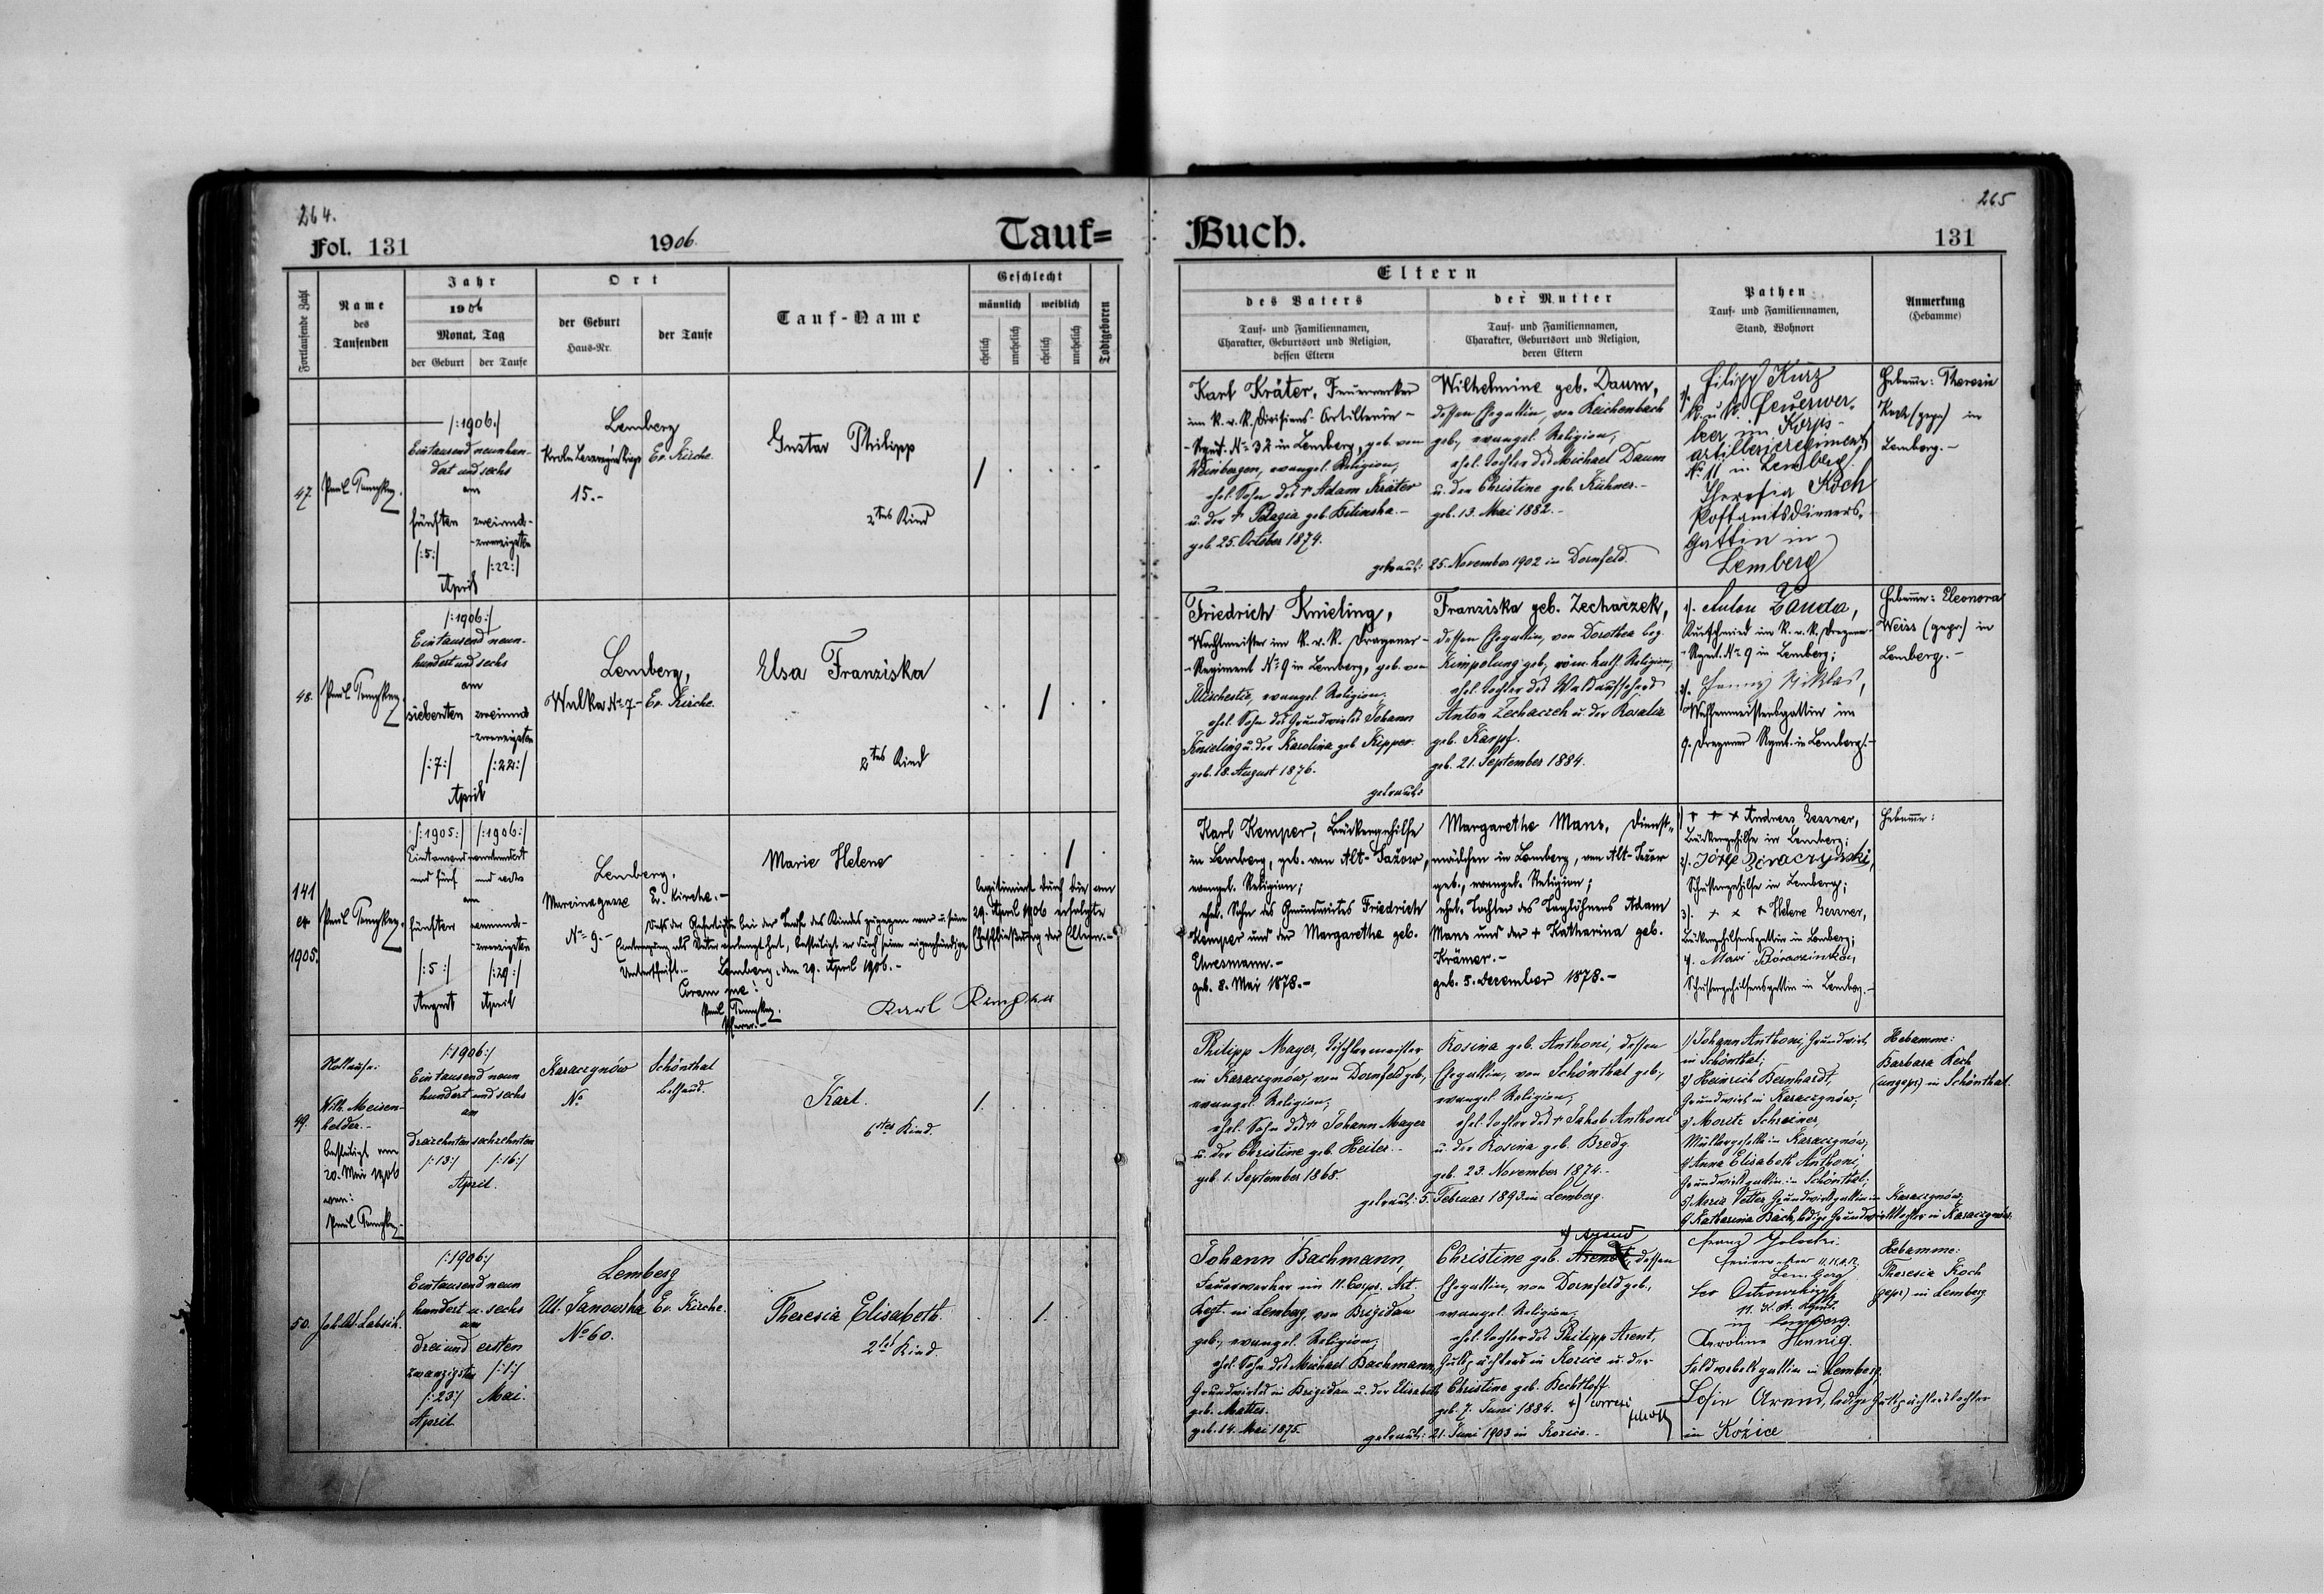 264.
Fol. 131
1906.
Tauf=
Fortlaufende Zahl
Name
des
Taufenden
Jahr
1906
Monat, Tag
der Geburt
der Taufe
Ort
der Geburt
Haus-Nr.
der Taufe
Tauf-Name
Geschlecht
männlich
weiblich
ehelich
unehelich
ehelich
unehelich
Todtgeboren
47.
Paul
/:1906:/
Eintausend neunhun-
dert und sechs
am
fünften
zweiund-
-zwanzigsten
/:5:/
/:22:/
April
Lemberg
15.-
Ev. Kirche.
Gustav Philipp
2tes Kind
/
48.
Paul
/:1906:/
Eintausend neun-
hundert und sechs
am
siebenten
zweiund
-zwanzigsten
/:7:/
/:22:/
April
Lemberg,
Wulka No 7.-
Ev. Kirche.
Elsa Franziska
2tes Kind
/
141
ex
1905.
Paul
/:1905:/ /:1906:/
Eintausend neunhundert
und fünf und sechs
am
fünften
neunund-
-zwanzigsten
/:5:/
/:29:/
August
April
Lemberg,
Marcinagasse
No 9.-
Ev. Kirche.-
Marie Helene
/
Daß der Gefertigte bei der Taufe des Kindes zugegen war u. seine
Eintragung als Vater verlangt hat, bestätigt er durch seine eigenhändige
Unterschrift.- Lemberg, den 29. April 1906.-
Coram me!
Paul
Pfarrer.-
Karl Kemper
legitimiert durch die am
29. April 1906 erfolgte
Eheschließung der Eltern.-
49.
Wilh. Meisen-
helder.-
bestätigt am
20. Mai 1906
von:
Paul
/:1906:/
Eintausend neun
hundert und sechs
am
dreizehnten sechzehnten
/:13:/ /:16:/
April.
Karaczynów
No
Schönthal
Bethaus.
Karl.
6tes Kind.
1.
50.
/:1906:/
Eintausend neun
hundert u. sechs
am
drei und ersten
zwanzigsten /:1:/
/:23:/ Mai.
April
Lemberg
Ul. Janowska
No 60.
Ev. Kirche.
Theresia Elisabeth.
2tes Kind.
1.
265
Buch.
131
Eltern
des Vaters
Tauf- und Familiennamen,
Charakter, Geburtsort und Religion,
dessen Eltern
der Mutter
Tauf- und Familiennamen,
Charakter, Geburtsort und Religion,
deren Eltern
Pathen
Tauf- und Familiennamen,
Stand, Wohnort
Anmerkung
(Hebamme)
Karl Kräter, Feuerwerker
im k. u. k. Divisions-Artillerie-
-Rgmt. No 32 in Lemberg, geb. von
Weinbergen, evangel. Religion,
ehel. Sohn des + Adam Kräter
u. der + Pelagia geb. Bilinska.-
geb. 25. October 1874.
Wilhelmine geb. Daum,
dessen Ehegattin, von Reichenbach
geb., evangel. Religion,
ehel. Tochter des Michael Daum
u. der Christine geb. Kühner.-
geb. 13. Mai 1882.-
getraut: 25. November 1902 in Dornfeld.
Filipp Kurz
k. u. k. Feuerwer-
ker im Korps-
artillerieregiment
No 11 in Lemberg.
Theresia Koch
Postamtsdieners-
gattin in
Lemberg
Hebamme: Theresia
Koch (gepr.) in
Lemberg.-
Friedrich Knieling,
Wachtmeister im k. u. k. Dragoner-
-Regiment No 9 in Lemberg, geb. von
Mischestie, evangel. Religion,
ehel. Sohn des Grundwirtes Johann
Knieling u. der Karolina geb. Kipper.
geb. 18. August 1876.
Franziska geb. Zecharzek,
dessen Ehegattin, von Dorothea bez.
Kimpolung geb., röm. kath. Religion,
ehel. Tochter des Waldaufsehers
Anton Zecharzek u. der Rosalia
geb. Karpf.
geb. 21. September 1884.
getraut:
1). Anton Zauda,
Kurschmied im k. u. k. Dragoner-
-Rgmt. No 9 in Lemberg;
2). Fanny Niklas,
Waffenmeistersgattin im
9. Dragoner Rgmt. in Lemberg.-
Hebamme: Eleonora
Weiss (gepr.) in
Lemberg.-
Karl Kemper, Bäckergehilfe
in Lemberg, geb. von Alt-Jażow,
evangel. Religion;
ehel. Sohn des Grundwirtes Friedrich
Kemper und der Margarethe geb.
Ehresmann.-
geb. 8. Mai 1878.-
Margarethe Manz, Dienst-
mädchen in Lemberg, von Alt-Jażow
geb., evangel. Religion;
ehel. Tochter des Taglöhners Adam
Manz und der + Katharina geb.
Krämer.-
geb. 5. Dezember 1878.-
1) + + + Andreas Gessner,
Bäckergehilfe in Lemberg;
2). Józef
Schustergehilfe in Lemberg;
3). + + + Helene Gessner,
Bäckergehilfensgattin in Lemberg;
4.
Schustergehilfensgattin in Lemberg.-
Hebamme:
Philipp Mayer, Tischlermeister
in Karaczynów, von Dornfeld geb.,
evangel. Religion,
ehel. Sohn des + Johann Mayer
u. der Christine geb. Heiler.-
geb. 1. September 1868.
Rosina geb. Anthoni, dessen
Ehegattin, von Schönthal geb.,
evangel. Religion,
ehel. Tochter des + Jakob Anthoni
u. der Rosina geb. Bredy
geb. 23. November 1874.-
getraut: 5. Februar 1893 in Lemberg.
1) Johann Anthoni, Grundwirt
in Schönthal;
2) Heinrich Bernhardt,
Grundwirt in Karaczynów;
3) Moritz Schreiner,
Müllergeselle in Karaczynów;
4) Anna Elisabeth Anthoni,
Grundwirtsgattin in Schönthal;
5) Maria Vetter Grundwirtsgattin in Karaczynów,
6) Katharina Bäch, ledige Grundwirtstochter in Karaczynów.
Hebamme:
Barbara Koch
(ungepr.) in Schönthal.
Johann Bachmann,
Feuerwerker im 11. Corps. Art.
Regt. in Lemberg, von Brigidau
geb., evangel. Religion,
ehel. Sohn des Michael Bachmann,
Grundwirtes in Brigidau u. der Elisabeth
geb. Mattes.
geb. 14. Mai 1875.
+) Arend
Christine geb. Arendt, dessen
Ehegattin, von Dornfeld geb.,
evangel. Religion,
ehel. Tochter des Philipp Arent,
Gutspächters in Kozice u. der
Christine geb. Bechtloff.
geb. 7. Juni 1884.
getraut: 21. Juni 1903 in Kozice.-
Franz
Feuerwerker
Lemberg
Leo
in Lemberg.
Karoline Hennig.
Feldwebelsgattin in Lemberg,
Sofie Arend, ledige Gutspächterstochter
in Kozice
Hebamme:
Theresia Koch
(gepr.) in Lemberg